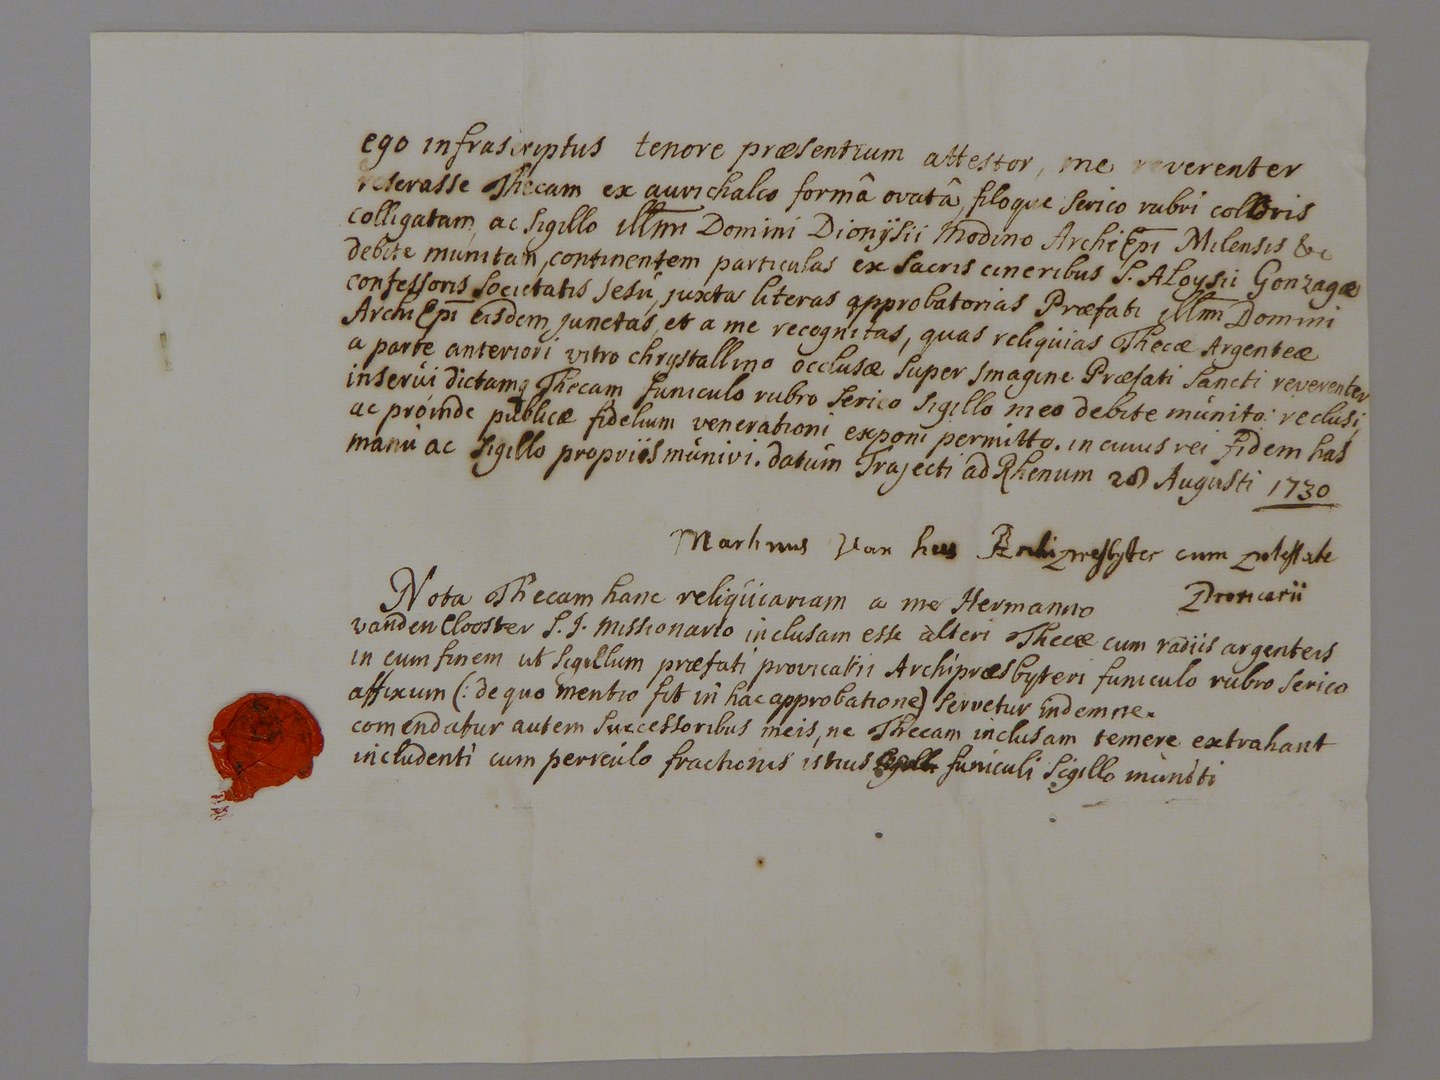 ego infrascriptus tenore præsentium attestor, me reverenter
reserasse Thecam ex aurichalco formâ ovatâ, filoque serico rubri colloris
colligatam, ac sigillo illmi Domini Dionijsii Modino ArchiEpi Milensis &c
debite munitam, continentem particulas ex sacris cineribus S. Aloysii Gonzagæ
confessoris societatis Jesú, juxta literas approbatorias Præfati illmi Domini
ArchiEpi eisdem junctas, et a me recognitas, quas reliqúias Thecæ Argenteæ
a parte anteriori vitro chrystallino occlusæ super Imagine Præfati sancti reverenter
inserúi dictamq Thecam funiculo rubro serico sigillo meo debite múnito: reclusi,
ac proinde publicæ fidelium venerationi exponi permitto. in cuius rei fidem has
manú ac sigillo propriis múnivi. datúm Trajecti ad Rhenum 28 Augusti 1730
Martinus Van hees Archipresbyter cum potestate
Provicarii
Nota Thecam hanc reliqúiariam a me Hermanno
vanden Clooster S. J. Missionario inclusam esse alteri Thecæ cum radiis argenteis
in eum finem ut sigillum præfati provicarii Archipræsbyteri funiculo rubro serico
affixum (: de quo mentio fit in hac approbatione) servetur indemne.
comendatur autem successoribus meis, ne Thecam inclusam temere extrahant
includenti cum pericúlo fractionis istius funiculi sigillo múniti